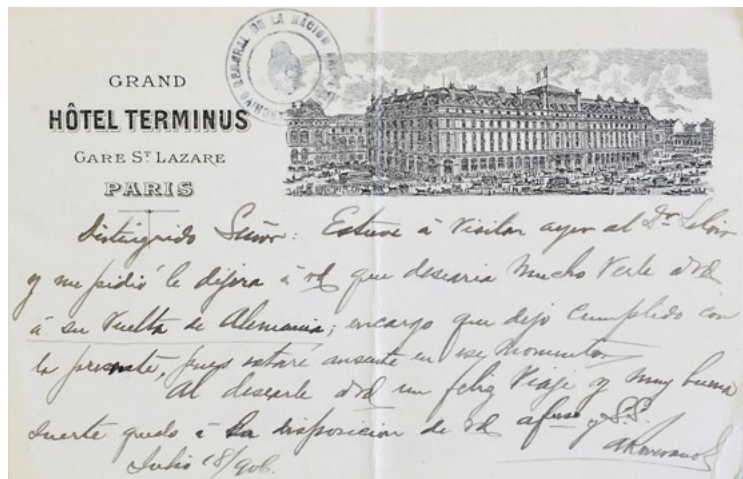 GRAND
HÔTEL TERMINUS
GARE ST LAZARE
PARIS
GENERAL DE LA NACION
Distinguido Señor: Estuve á visitar ayer al Dr.
y me pidió le dijera á vd que desearia mucho verle á vd
á su vuelta de Alemania; encargo que dejo cumplido con
la presente, pues estaré ausente en ese momento
Al desearle á vd un feliz viaje y muy buena
suerte quedo á su disposicion de vd afmo y S.S.
Julio 18/906.